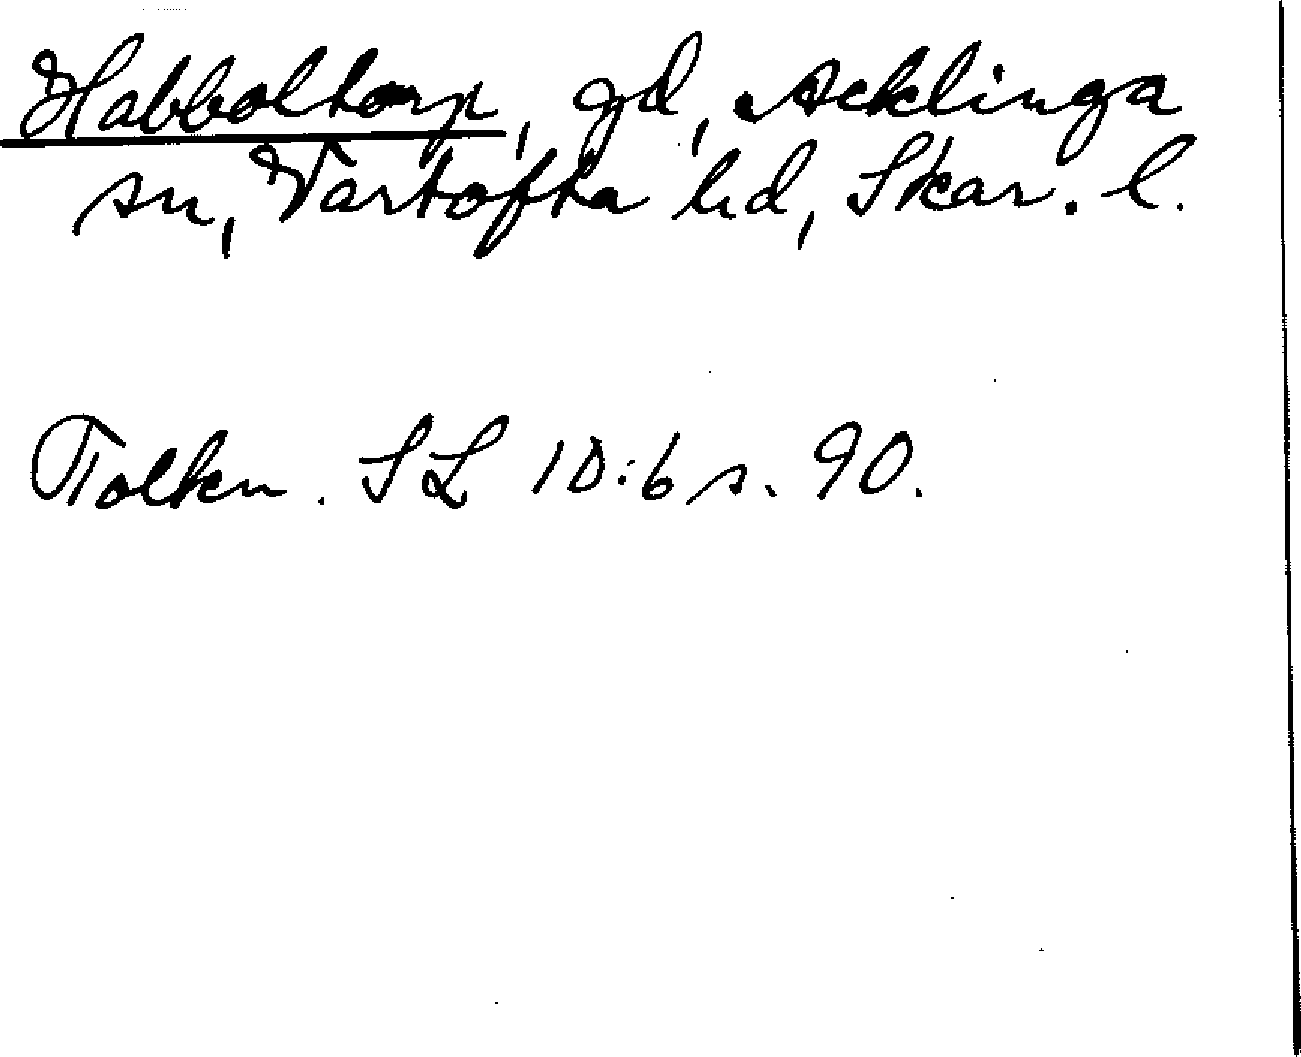 Habboltorp, gd, Acklinga
sn, Vartofta hd, Skar. l.
Tolkn. SL 10:6 s. 90.